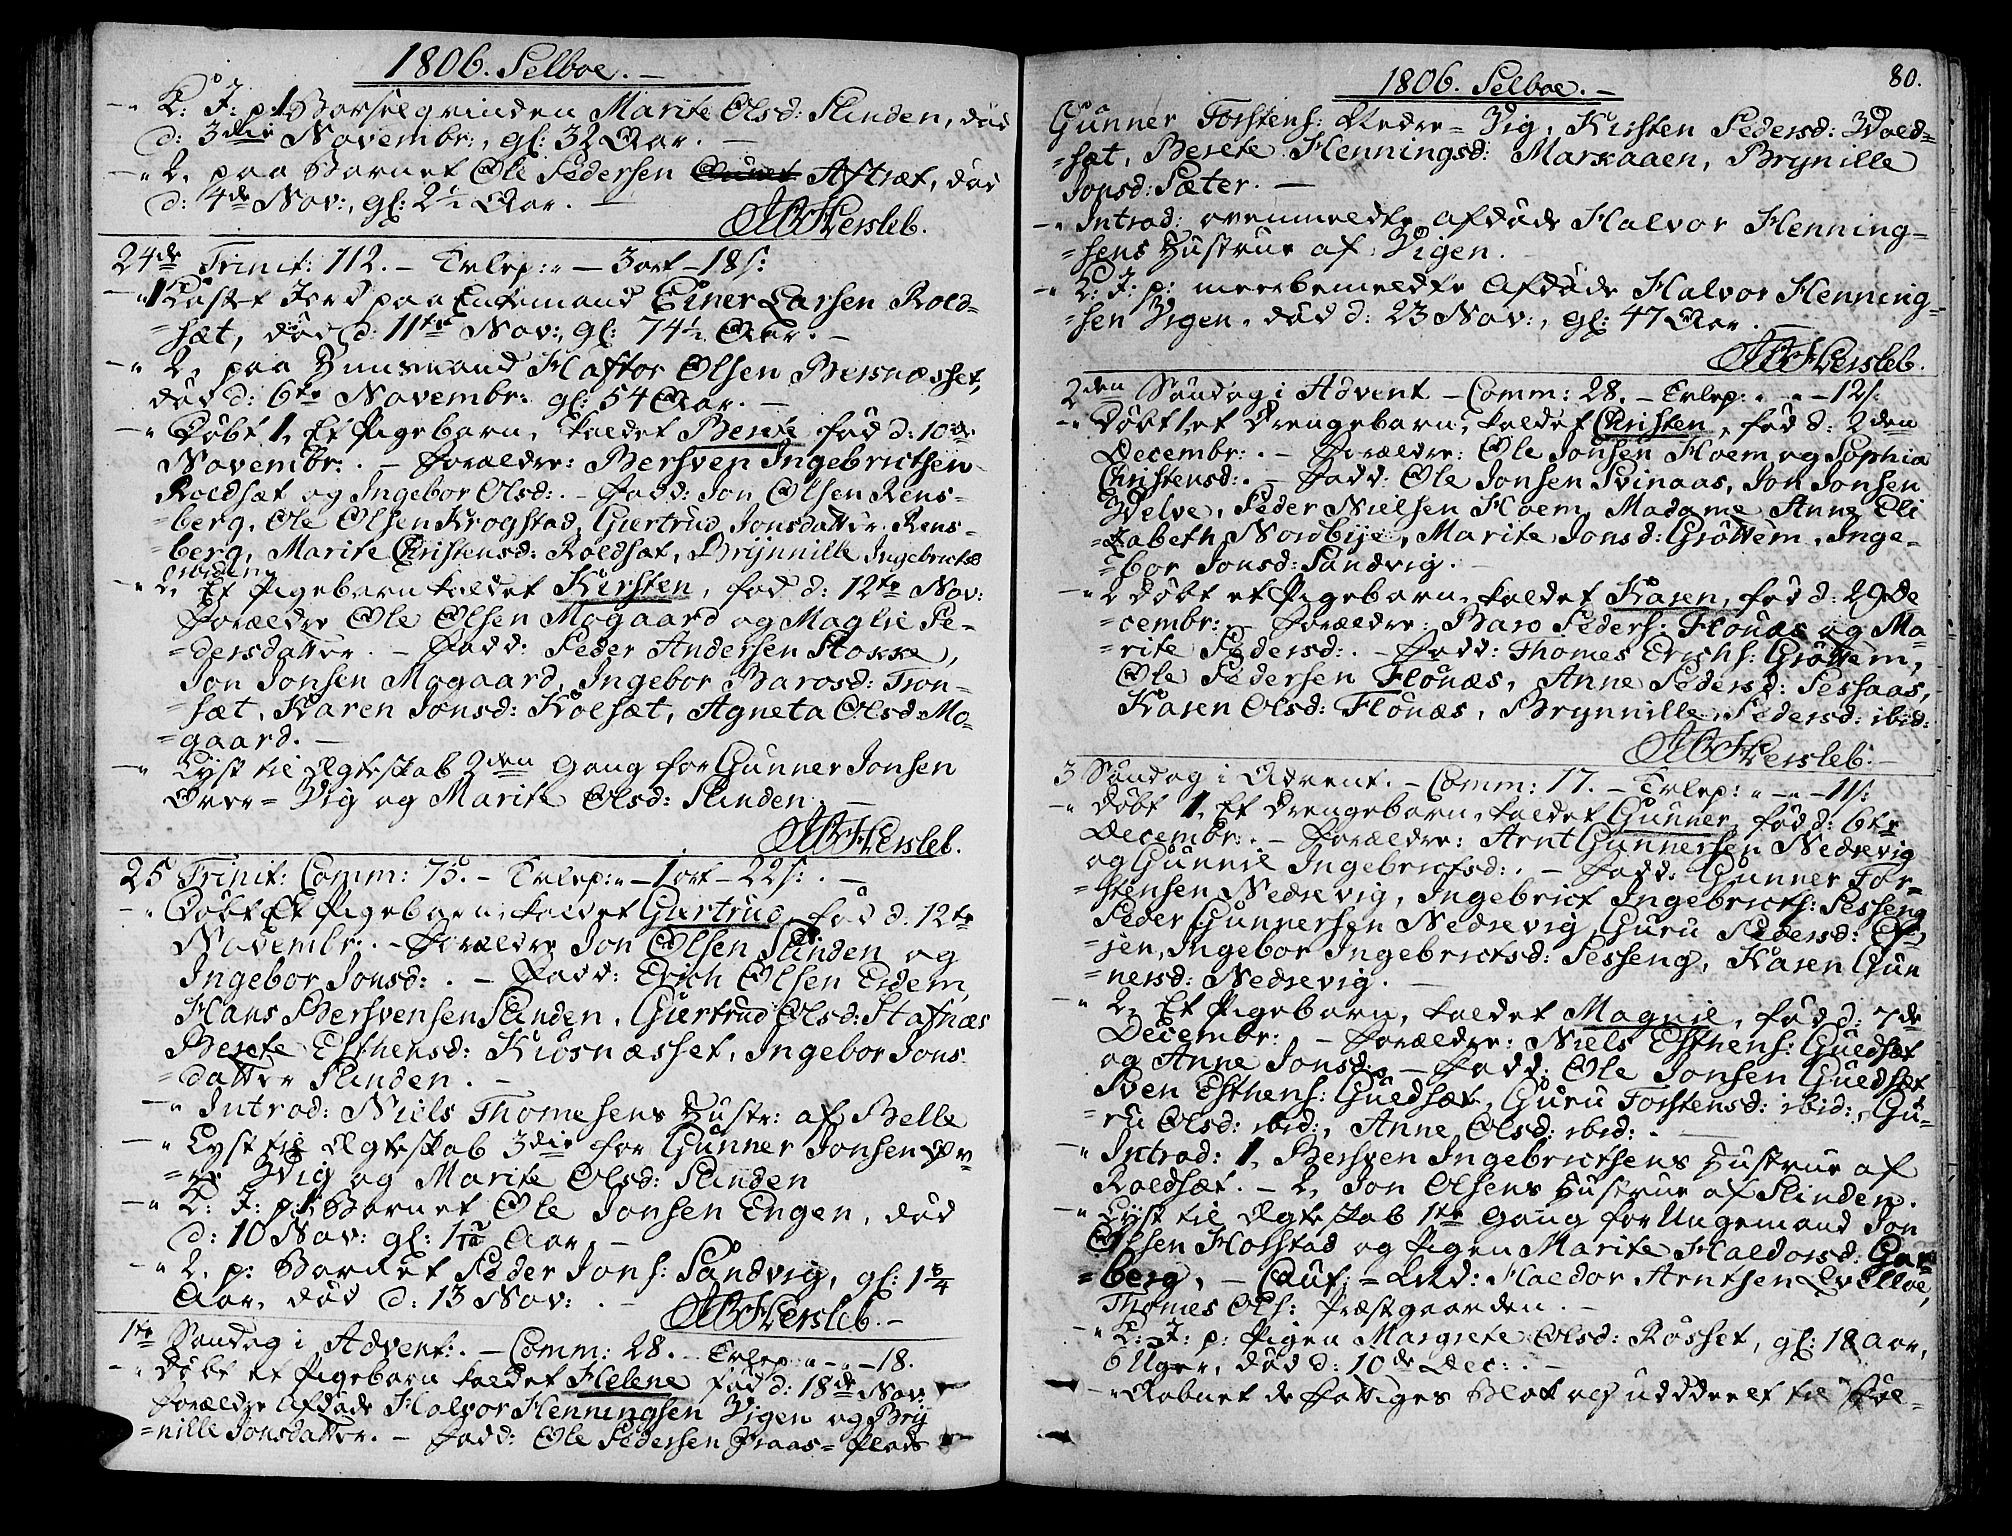 1806. Selboe. –
–" K: J: p: 1, Barselqvinden Marite Olsd: Slinden, død
d: 3die Novembr:, gl: 32 Aar. –
–" 2, paa Barnet Ole Pedersen Aftræt, død
d: 4de Nov:, gl: 2½ Aar. –
JB Hersleb.
24de Trinit: 112. – Erlep: " – 3 ort – 18 s:
–" 1 Kastet Jord paa Enkemand Einer Larsen Rold-
=sæt, død d: 11te Nov:, gl: 74½ Aar. –
–" 2, paa Huusmand Haftor Olsen Bersnæsset,
død d: 6te Novembr: gl: 54 Aar. –
–" Døbt 1, Et Pigebarn, kaldet Berit fød d: 10de
Novembr: . – Forældre: Bersven Ingebrictsen
Roldsæt og Ingebor Olsd: . – Fadd: Jon Olsen Rens-
=berg, Ole Olsen Krogstad, Giertrud Jonsdatter Rens-
=berg, Marite Christensd: Roldsæt, Brynnille Ingebrictsd
ibidem
–" 2, Et Pigebarn kaldet Kirsten, fød d: 12te Nov:
Forældre Ole Olsen Mogaard og Maglie Pe-
=dersdatter. – Fadd: Peder Andersen Stokke,
Jon Jonsen Mogaard, Ingebor Barosd: Tron-
=sæt, Karen Jonsd: Kolsæt, Agneta Olsd: Mo-
=gaard. –
–" Lyst til Ægteskab 2den Gang for Gunner Jonsen
Over = Vig og Marite Olsd: Slinden. –
JB Hersleb.
25 Trinit: Comm: 75. – Erlep: " – 1 ort – 22 s: . –
–" Døbt Et Pigebarn, kaldet Giertrud, fød d: 12te
Novembr: . – Forældre Jon Olsen Slinden og
Ingebor Jonsd: . – Fadd: Erich Olsen Eidem,
Hans Bersvensen Slinden, Giertrud Olsd: Stafnæs
Berete Esthensd: Kiøsnæsset, Ingebor Jons-
=datter Slinden. –
–" Introd: Niels Thomesens Hustr: af Belle
–" Lyst til Ægteskab 3die for Gunner Jonsen Ov-
=er Vig og Marite Olsd: Slinden
–" K: J: p: 1, Barnet Ole Jonsen Engen, død
d: 10 Nov: gl: 1 Aar. –
–" 2, p: Barnet Peder Jons: Sandvig, gl: 1¾
Aar, død d: 13 Nov: . –
JB Hersleb. –
1te Søndag i Advent: . – Comm: 28. – Erlep: " – " – 18.
–" Døbt et Pigebarn kaldet Helene fød d: 18de Nov:
Forældre Afdøde Halvor Henningsen Vigen og Bry
=nille Jonsdatter. – Fadd: Ole Pedersen Praas = Plads
80.
1806. Selboe. –
Gunner Torstens: Nedre = Vig, Kirsten Pedersd: Vold-
=sæt, Berete Henningsd: Markaaen, Brynille
Jonsd: Sæter. –
–" Introd: ovenmeldte afdøde Halvor Henning-
=sens Hustrue af Vigen.
–" K: J: p: meerbemeldte Afdøde Halvor Henning-
=sen Vigen, død d: 23 Nov:, gl: 47 Aar. –
JB Hersleb.
2den Søndag i Advent – Comm: 28. – Erlep: " – " – 12 s:
–" Døbt 1, et Drengebarn, kaldet Christen, fød d: 2den
Decembr: . – Forældre: Ole Jonsen Hoem og Sophia
Christensd: . – Fadd: Ole Jonsen Svinaas, Jon Jonsen
Velve, Peder Nielsen Hoem, Madame Anne Eli
=sabeth Nordbye, Marite Jonsd: Grøttem, Inge-
=bor Jonsd: Sandvig. –
–" 2 Døbt et Pigebarn, kaldet Karen, fød d: 2 De
=cembr: . – Forældre: Baro Peders: Flonæs og Ma-
=rite Pedersd: . – Fadd: Thomes Erichs: Grøttem,
Ole Pedersen Flonæs, Anne Pedersd: Sessaas,
Karen Olsd: Flonæs, Brynnille Pedersd: ibid:
JB Hersleb. –
3 Søndag i Advent. – Comm: 17. – Erlep: " – " – 11 s:
–" Døbt 1, Et Drengebarn, kaldet Gunner, fød d: 6te
Decembr: . – Forældre: Arnt Gunnersen Nedrevig
og Gunnil Ingebrictsd: . – Fadd: Gunner Tor-
=stensen Nedrevig, Ingebrict Ingebricts: Sesseng
Peder Gunnersen Nedrevig, Guru Pedersd:
=sen, Ingebor Ingebrictsd: Sesseng, Karen Gun
=nersd: Nedrevig. –
–" 2, Et Pigebarn, kaldet Magnil, fød d: 7de
Decembr: – Forældre: Niels Esthens: Guldsæt
og Anne Jonsd: . – Fadd: Ole Jonsen Guldsæt
Sven Esthens: Guldsæt, Guru Torstensd: ibid:, Gu-
=ru Olsd: ibid:, Anne Olsd: ibid: . –
–" Introd: 1, Bersven Ingebrictsens Hustrue af
Roldsæt. – 2, Jon Olsens Hustrue af Slinden.
–" Lyst til Ægteskab 1te Gang for Ungemand Jon
Olsen Hofstad og Pigen Marite Haldorsd: Gar-
=berg, – Caut: = Lød: Haldor Arntsen Evelloe,
Thomes Ols: Præstgaarden. –
–" K: J: p: Pigen Margrete Olsd: Røsset, gl: 18 Aar,
6 Uger, død d: 10de Dec: . –
–" Aabnet de Fattiges Blok og uddeelt til Jul-